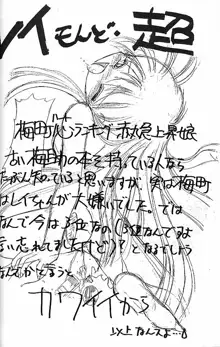 レイもんど・超
梅町心ランキング赤丸急上昇娘
ハート
あい梅町の本を持っている人なら
たぶん知っていると思いますが、実は梅町
はレイちゃんが大嫌いでした。では
なんで今は3位なの(3位なんてみ
言い忘れてましたけど)?となるでしょう
なんでかと言うと
カワイイから
以上なんスよ…